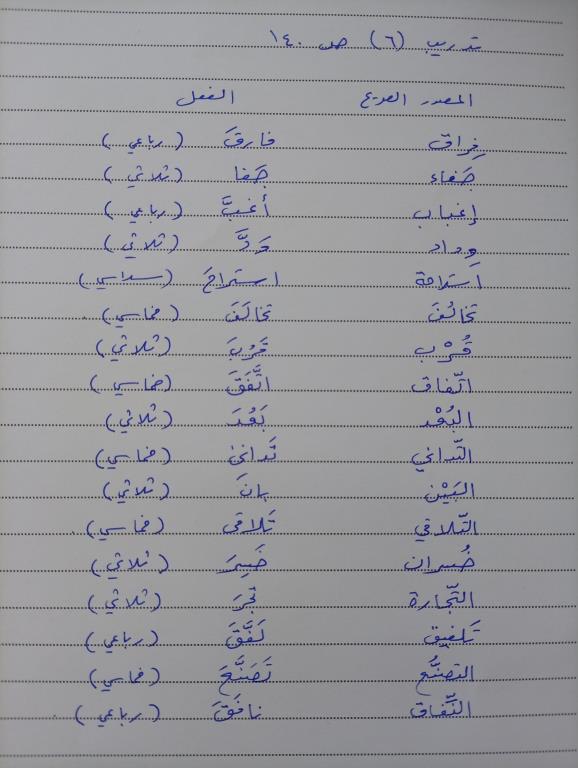 تدريب (٦) ص ١٤٠
المصدر الصريح الفعل
فِراق فارقَ (رباعي)
جَفاء جَفا (ثلاثي)
إغباب أغبَّ (رباعي)
وِداد وَدَّ (ثلاثي)
استراحة استراحَ (سداسي)
تخالُف تخالَفَ (خماسي)
قُرْب قَرُبَ (ثلاثي)
اتّفاق اتَّفَقَ (خماسي)
البُعْد بَعُدَ (ثلاثي)
التّداني تَدانى (خماسي)
البَيْن بانَ (ثلاثي)
التّلاقي تَلاقى (خماسي)
خُسران خَسِرَ (ثلاثي)
التّجارة تجرَ (ثلاثي)
تَلفيق لَفَّقَ (رباعي)
التصنُّع تَصَنَّعَ (خماسي)
النِّفاق نافَقَ (رباعي)